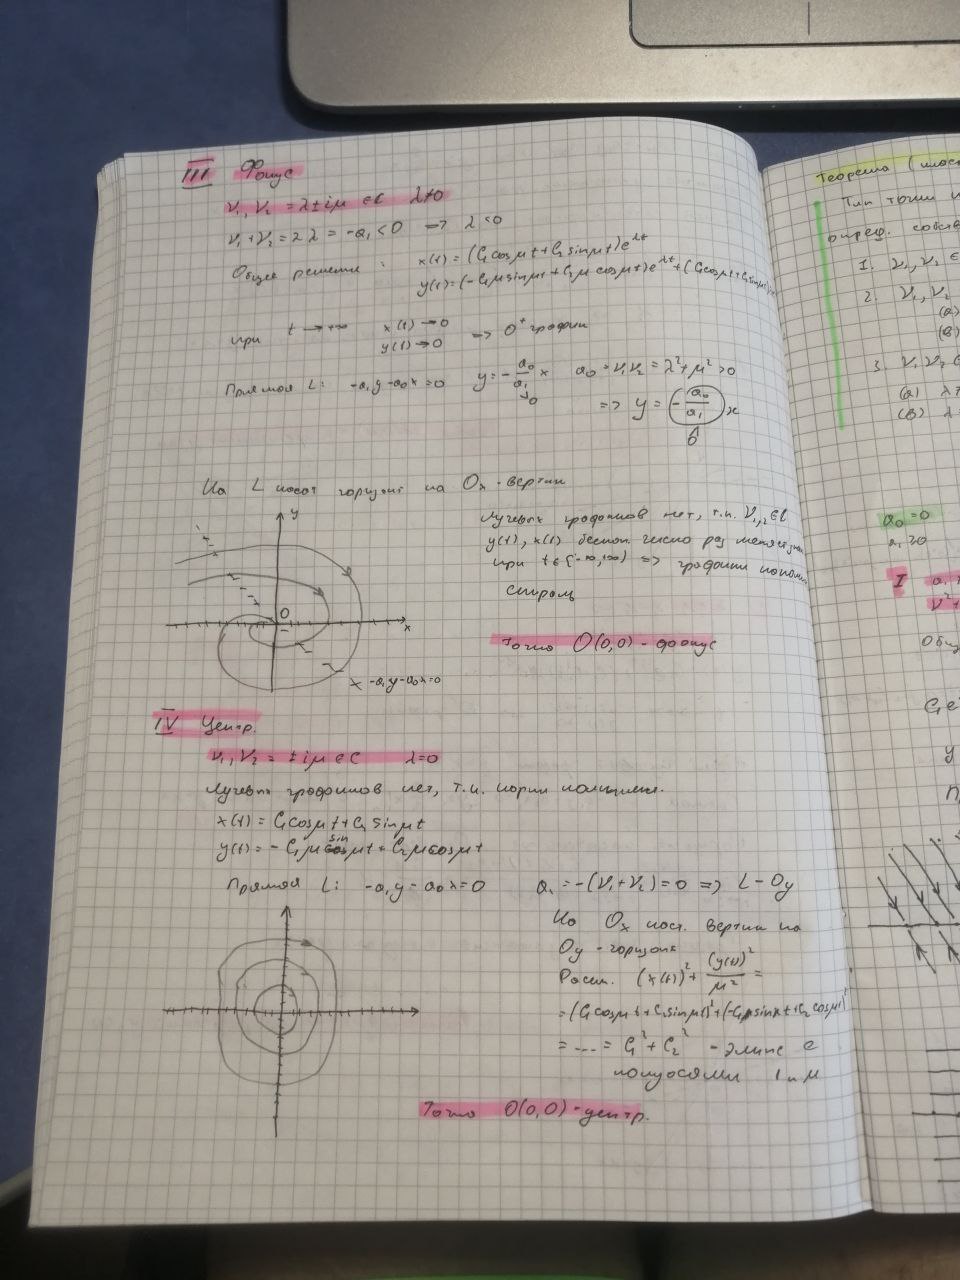 III Фокус
ν₁, ν₂ = λ ± iμ ∈ C λ≠0
ν₁ + ν₂ = 2λ = -a₁ < 0 => λ < 0
Общее решение : x(t) = (C₁cosμt + C₂sinμt)e^λt
y(t) = (-C₁μsinμt + C₂μcosμt)e^λt + (C₁cosμt + C₂sinμt)
при t → +∞ x(t) → 0 => O⁺ графики
y(t) → 0
Прямая L: -a₁y - a₀x = 0 y = -a₀/a₁ x a₀ = ν₁ν₂ = λ² + μ² > 0
=> y = (-a₀/a₁) x
На L накл горизонт на Ox - вертик
y
Лучевых графиков нет, т.к. ν₁,₂ ∈ C
y(t), x(t) бескон. число раз меняет
при t ∈ (-∞, ∞) => графики
спираль
O
x
-a₁y - a₀x = 0
Точка O(0,0) - фокус
IV Центр.
ν₁, ν₂ = ± iμ ∈ C λ=0
Лучевых графиков нет, т.к. корни комплекс.
x(t) = C₁cosμt + C₂ sinμt
y(t) = - C₁μ sin μt + C₂μcosμt
Прямая L: -a₁y - a₀x = 0 a₁ = -(ν₁+ν₂) = 0 => L - Oy
На Ox накл. вертик на
Oy - горизонт
Рассм. (x(t))² + (y(t))²/μ² =
= (C₁cosμt + C₂sinμt)² + (-C₁sinμt + C₂cosμt)²
= ... = C₁² + C₂² - элипс с
полуосями 1 и μ
Точка O(0,0) - центр.
Теорема (
Тип точки
опред. собств
1. ν₁, ν₂ ∈
2. ν₁, ν₂
(а)
(в)
3. ν₁, ν₂ ∈
(а) λ ≠
(в) λ =
a₀ = 0
a₁ ≥ 0
I a₁
ν² +
Общ
C₁e
y